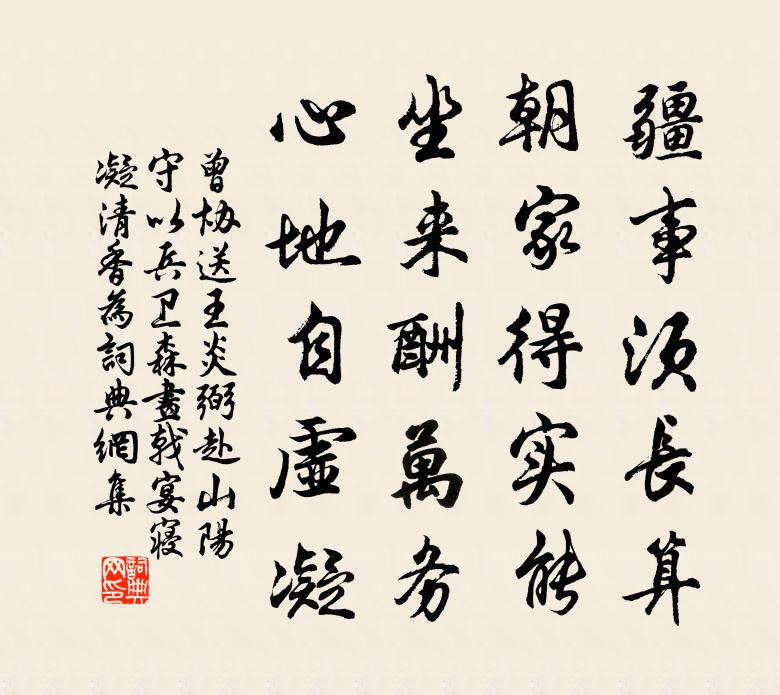 疆事须長算
朝家得实能
坐来酬萬务
心地自虚凝
曾协送王炎弼赴山陽
守以兵卫森畫戟宴寝
凝清香為詞典網集
詞典网印